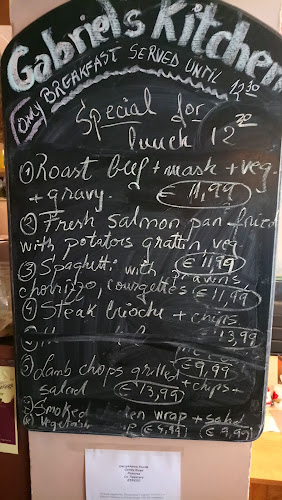 Gabriel's Kitchen
only BREAKFAST SERVED UNTIL 12 30
Special for
lunch 12 30
① Roast beef + mash + veg.
+ gravy. € 11,99
② Fresh salmon pan fried
with potatos grattin, veg.
③ Spaghetti with prawns, € 11,99
chorizzo, courgettes € 11,99
④ Steak brioche + chips
€ 13,99
€ 9,99
Lamb chops grilled + chips +
salad € 13,99
Smoked chicken wrap + salad
Vegetable € 9,99 € 9,99